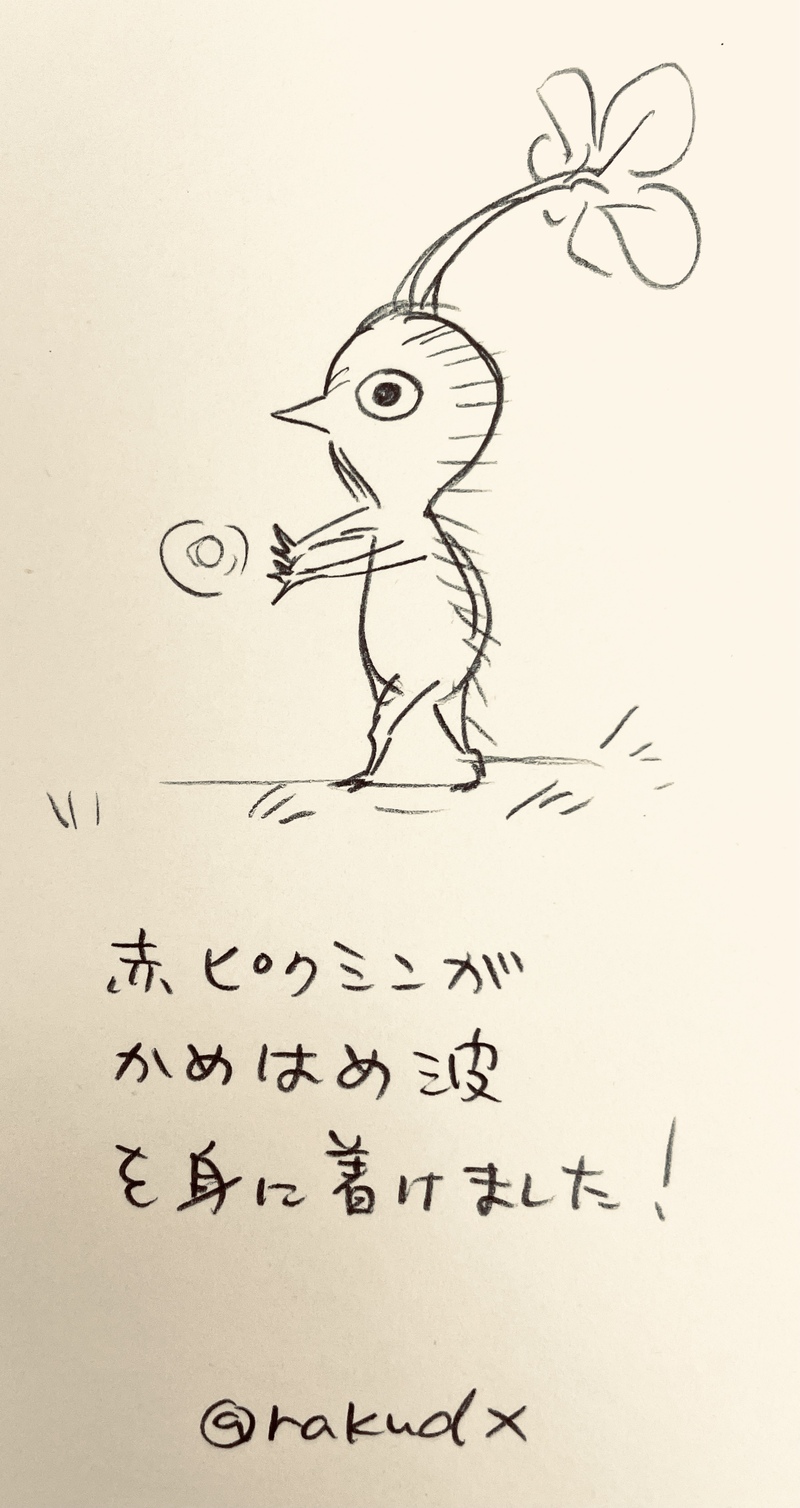 赤ピクミンが
かめはめ波
を身に着けました!
@rakudx